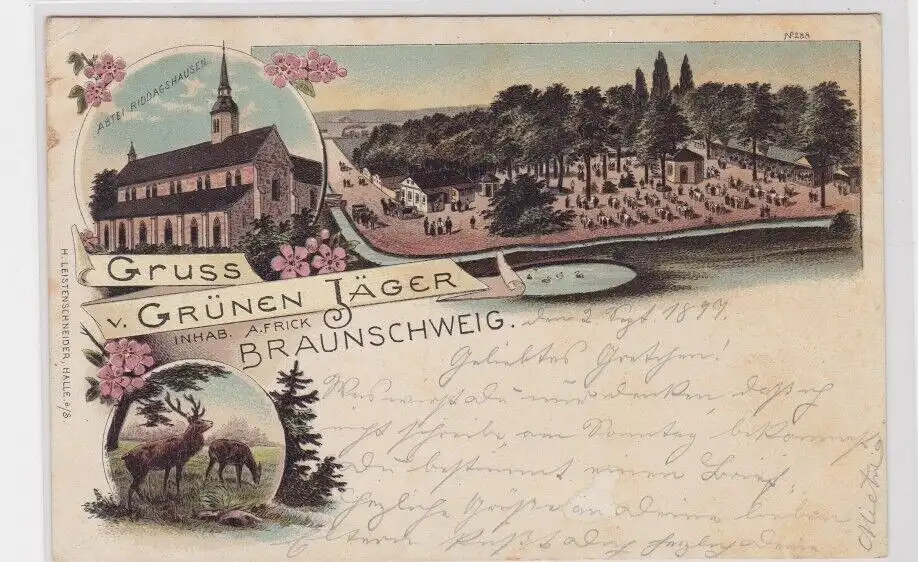 No 288
ABTEI RIDDAGSHAUSEN.
GRUSS
v. GRÜNEN JÄGER
INHAB. A. FRICK
BRAUNSCHWEIG.
H. LEISTENSCHNEIDER, HALLE a/S.
den 2 Sept. 1897.
Geliebtes Gretchen!
Was wirst du nur denken, daß ich
nicht schreibe, am Sonntag bekommst
Du bestimmt einen Brief,
herzliche Grüße an deine lieben
Eltern Küßt dich herzlich dein